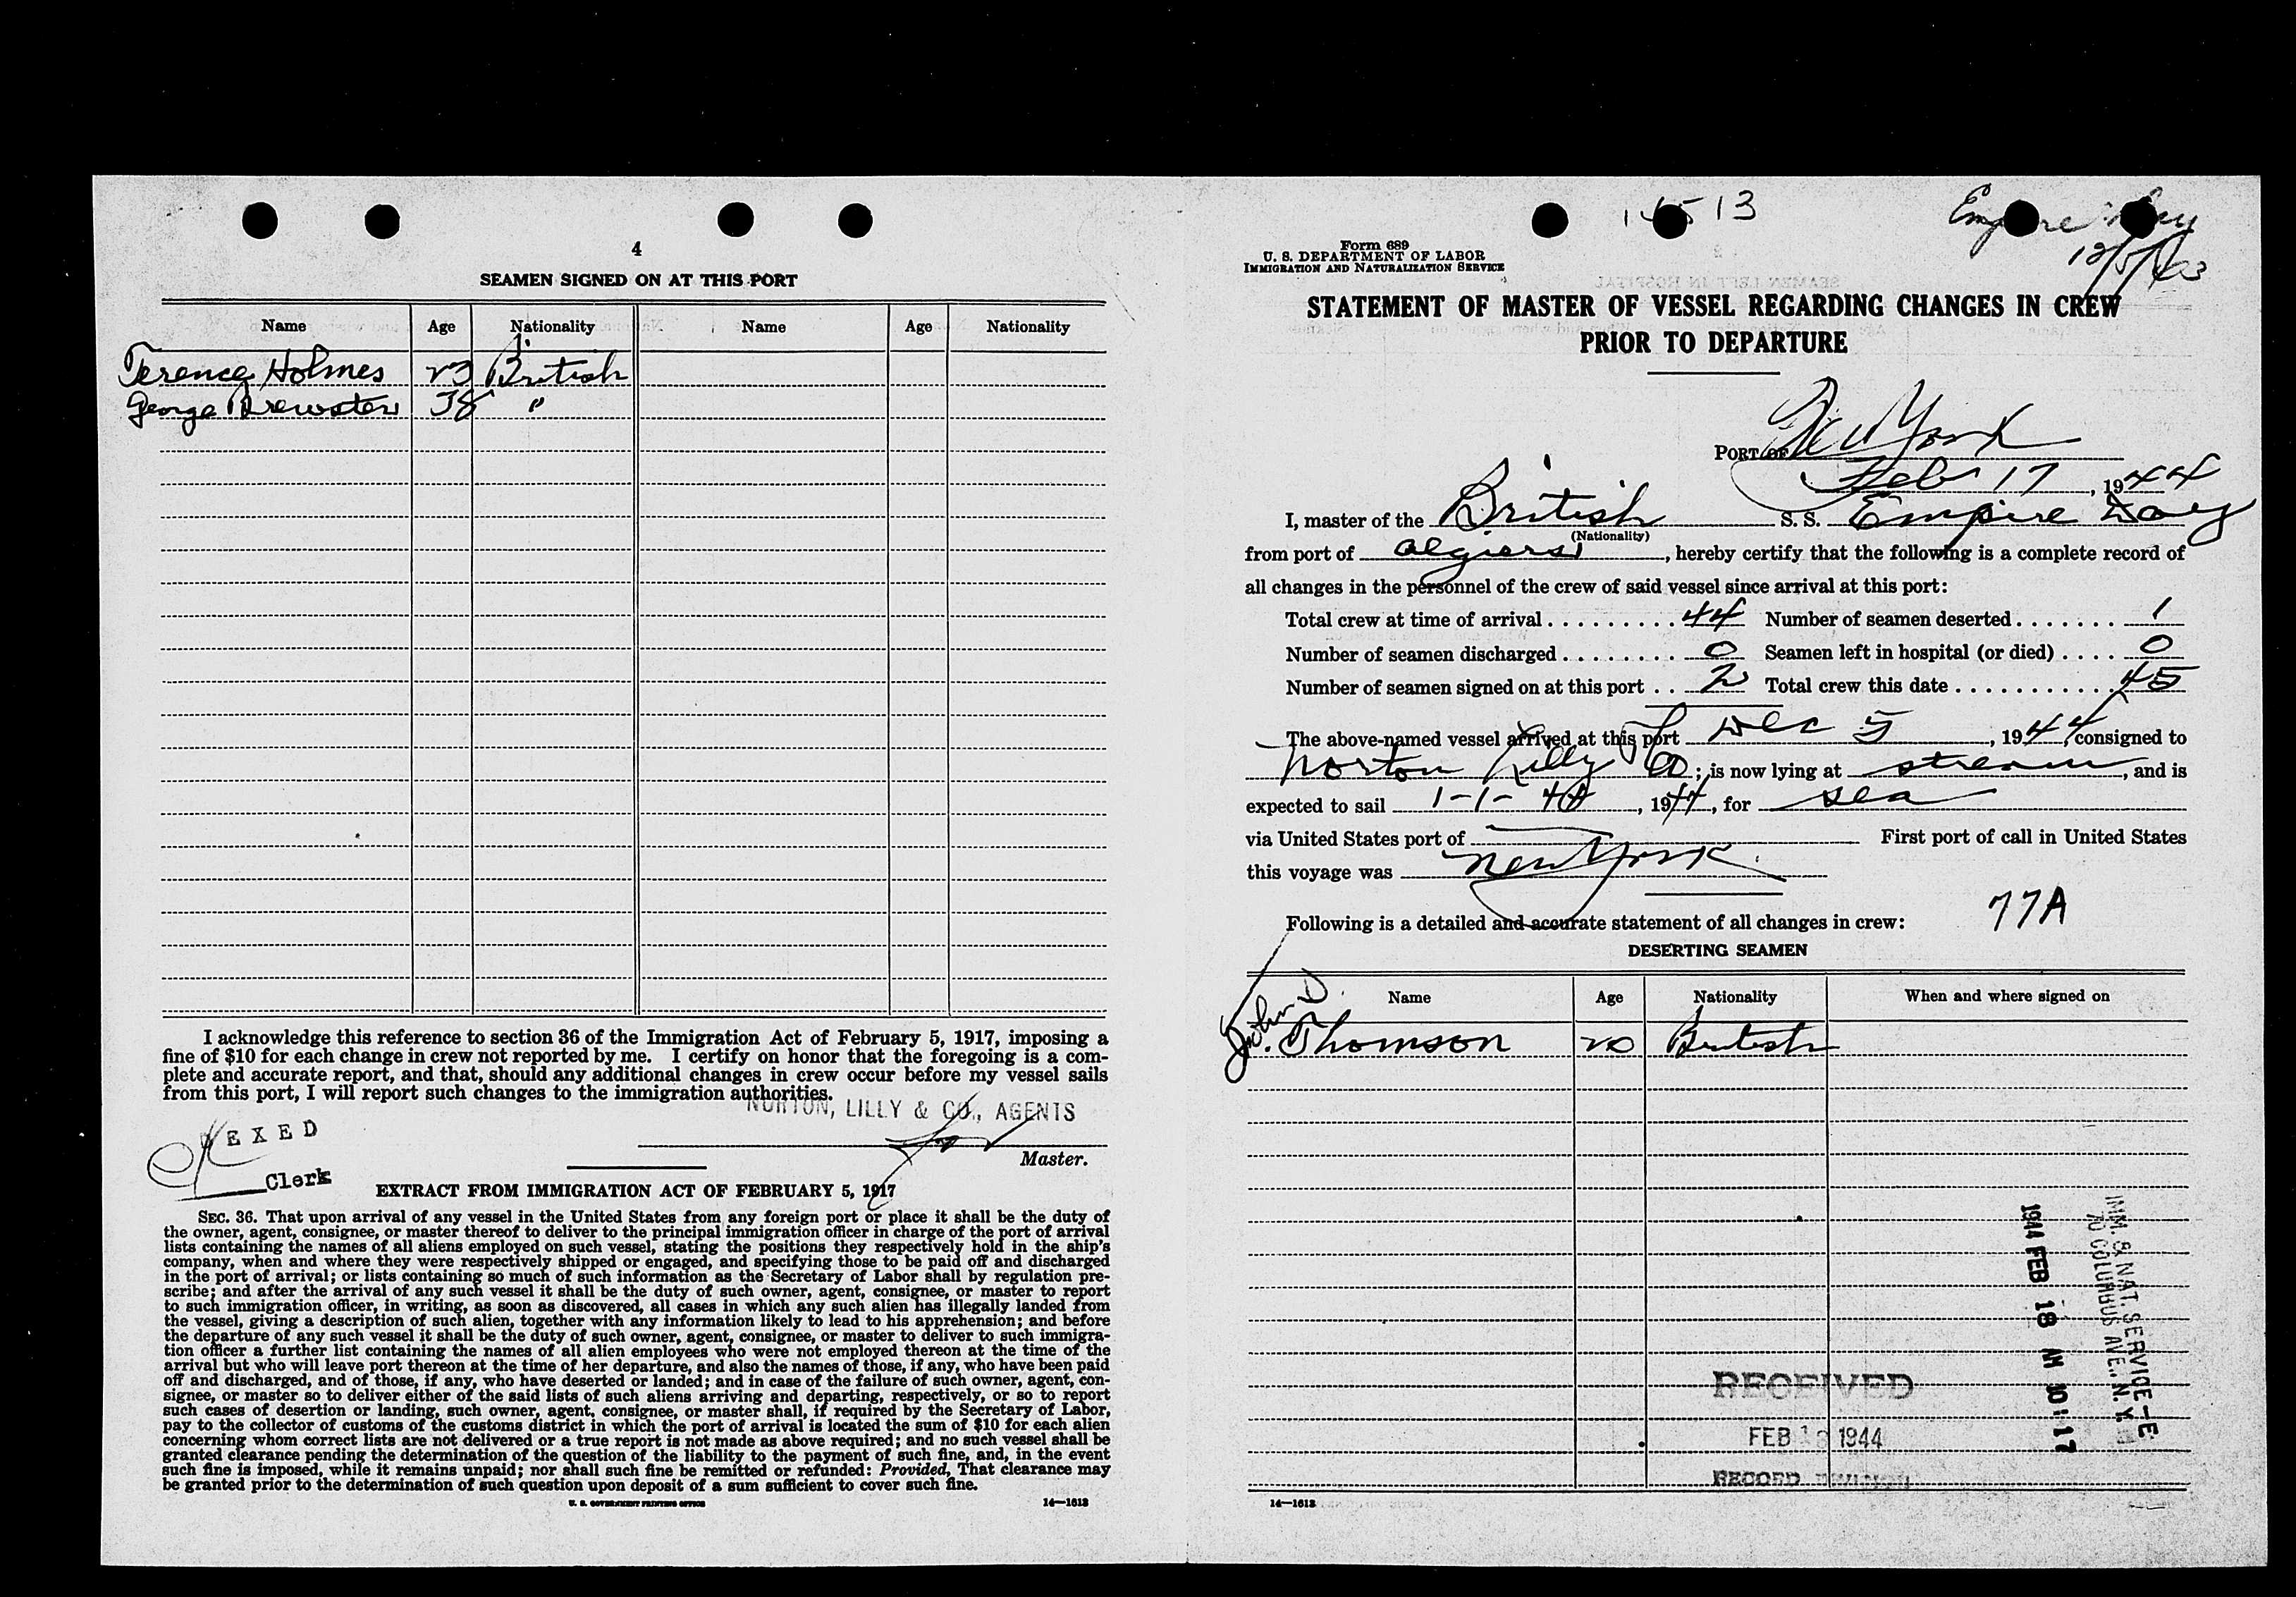 4
SEAMEN SIGNED ON AT THIS PORT
Name Age Nationality Name Age Nationality
Terence Holmes 23 British
George Brewster 38 "
I acknowledge this reference to section 36 of the Immigration Act of February 5, 1917, imposing a
fine of $10 for each change in crew not reported by me. I certify on honor that the foregoing is a com-
plete and accurate report, and that, should any additional changes in crew occur before my vessel sails
from this port, I will report such changes to the immigration authorities.
NORTON, LILLY & CO., AGENTS
Master.
EXED
Clerk
EXTRACT FROM IMMIGRATION ACT OF FEBRUARY 5, 1917
SEC. 36. That upon arrival of any vessel in the United States from any foreign port or place it shall be the duty of
the owner, agent, consignee, or master thereof to deliver to the principal immigration officer in charge of the port of arrival
lists containing the names of all aliens employed on such vessel, stating the positions they respectively hold in the ship's
company, when and where they were respectively shipped or engaged, and specifying those to be paid off and discharged
in the port of arrival; or lists containing so much of such information as the Secretary of Labor shall by regulation pre-
scribe; and after the arrival of any such vessel it shall be the duty of such owner, agent, consignee, or master to report
to such immigration officer, in writing, as soon as discovered, all cases in which any such alien has illegally landed from
the vessel, giving a description of such alien, together with any information likely to lead to his apprehension; and before
the departure of any such vessel it shall be the duty of such owner, agent, consignee, or master to deliver to such immigra-
tion officer a further list containing the names of all alien employees who were not employed thereon at the time of the
arrival but who will leave port thereon at the time of her departure, and also the names of those, if any, who have been paid
off and discharged, and of those, if any, who have deserted or landed; and in case of the failure of such owner, agent, con-
signee, or master so to deliver either of the said lists of such aliens arriving and departing, respectively, or so to report
such cases of desertion or landing, such owner, agent, consignee, or master shall, if required by the Secretary of Labor,
pay to the collector of customs of the customs district in which the port of arrival is located the sum of $10 for each alien
concerning whom correct lists are not delivered or a true report is not made as above required; and no such vessel shall be
granted clearance pending the determination of the question of the liability to the payment of such fine, and, in the event
such fine is imposed, while it remains unpaid; nor shall such fine be remitted or refunded: Provided, That clearance may
be granted prior to the determination of such question upon deposit of a sum sufficient to cover such fine.
U. S. GOVERNMENT PRINTING OFFICE 14—1613
13
Empire
12/5/43
Form 689
U. S. DEPARTMENT OF LABOR
IMMIGRATION AND NATURALIZATION SERVICE
STATEMENT OF MASTER OF VESSEL REGARDING CHANGES IN CREW
PRIOR TO DEPARTURE
PORT OF New York
Feb 17, 1944
I, master of the British S. S. Empire Day
(Nationality)
from port of Algiers, hereby certify that the following is a complete record of
all changes in the personnel of the crew of said vessel since arrival at this port:
Total crew at time of arrival ......... 44 Number of seamen deserted ....... 1
Number of seamen discharged ........ 0 Seamen left in hospital (or died) .... 0
Number of seamen signed on at this port .. 2 Total crew this date ........... 45
The above-named vessel arrived at this port Dec 5, 1944, consigned to
Norton Lilly Co; is now lying at stream, and is
expected to sail 1-1-44, 1944, for sea
via United States port of First port of call in United States
this voyage was New York
77A
Following is a detailed and accurate statement of all changes in crew:
DESERTING SEAMEN
Name Age Nationality When and where signed on
John D.
Thomson 20 British
IMM. & NAT. SERVICE-E
70 COLUMBUS AVE., N.Y.
1944 FEB 18 AM 10:17
RECEIVED
FEB 18 1944
RECORD DIVISION
14—1613